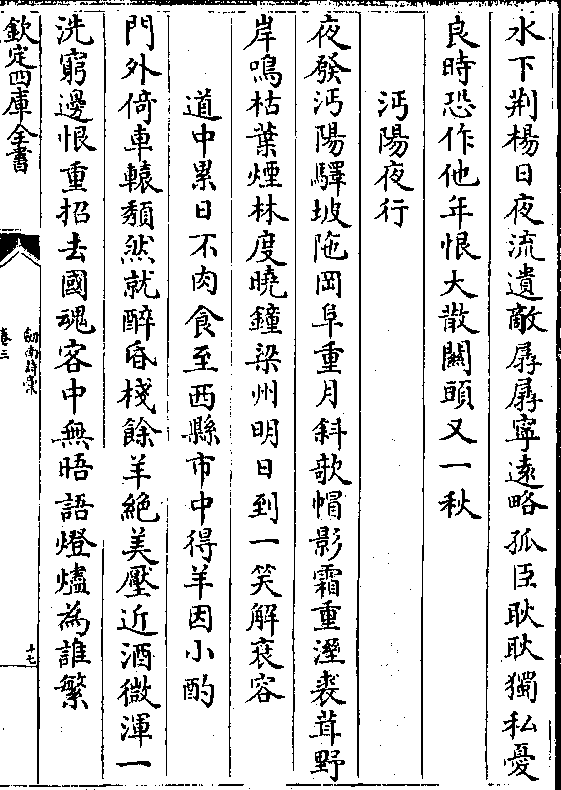 水下荆楊日夜流遺敵孱孱寧遠略孤臣耿耿獨私憂
良時恐作他年恨大散關頭又一秋
沔陽夜行
夜發沔陽驛坡陁岡阜重月斜欹帽影霜重溼裘茸野
岸鳴枯葉煙林度曉鐘梁州明日到一笑解衰容
道中累日不肉食至西縣市中得羊因小酌
門外倚車轅頽然就醉昏棧餘羊絶美壓近酒微渾一
洗窮邊恨重招去國魂客中無晤語燈燼為誰繁
欽定四庫全書
劒南詩稾
卷三
十七